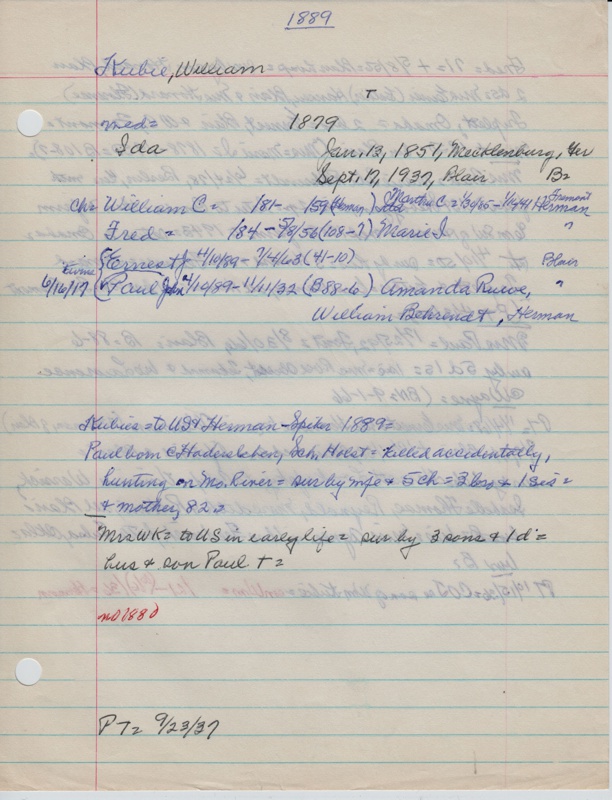 1889
Kubie, William
T
med= 1879
Ida Jan. 13, 1851, Mecklenburg, Ger
Sept. 17, 1937, Blair B=
ch= William C= /81- /59 (Henry) Martha C. = Herman Fremont
Fred= /84 - 5/8/56 (108-7) Marie I. "
{Ernest J 4/10/89- 7/4/63 (41-10) Blair
6/16/17 (Paul John 4/10/89-11/21/32 (B88-6) Amanda Ruwe, "
William Behrendt, Herman
Kubies= to US & Herman-Spiker 1889=
Paul born c Hadersleben, Sch. Holst= killed accidentally,
hunting on Mo. River= sur by wife & 5 ch= 3 bos & 1 sis=
& mother, 82=
Mrs WK= to US in early life= sur by 3 sons & 1 d=
hus & son Paul +=
no 1880
PT= 9/23/37